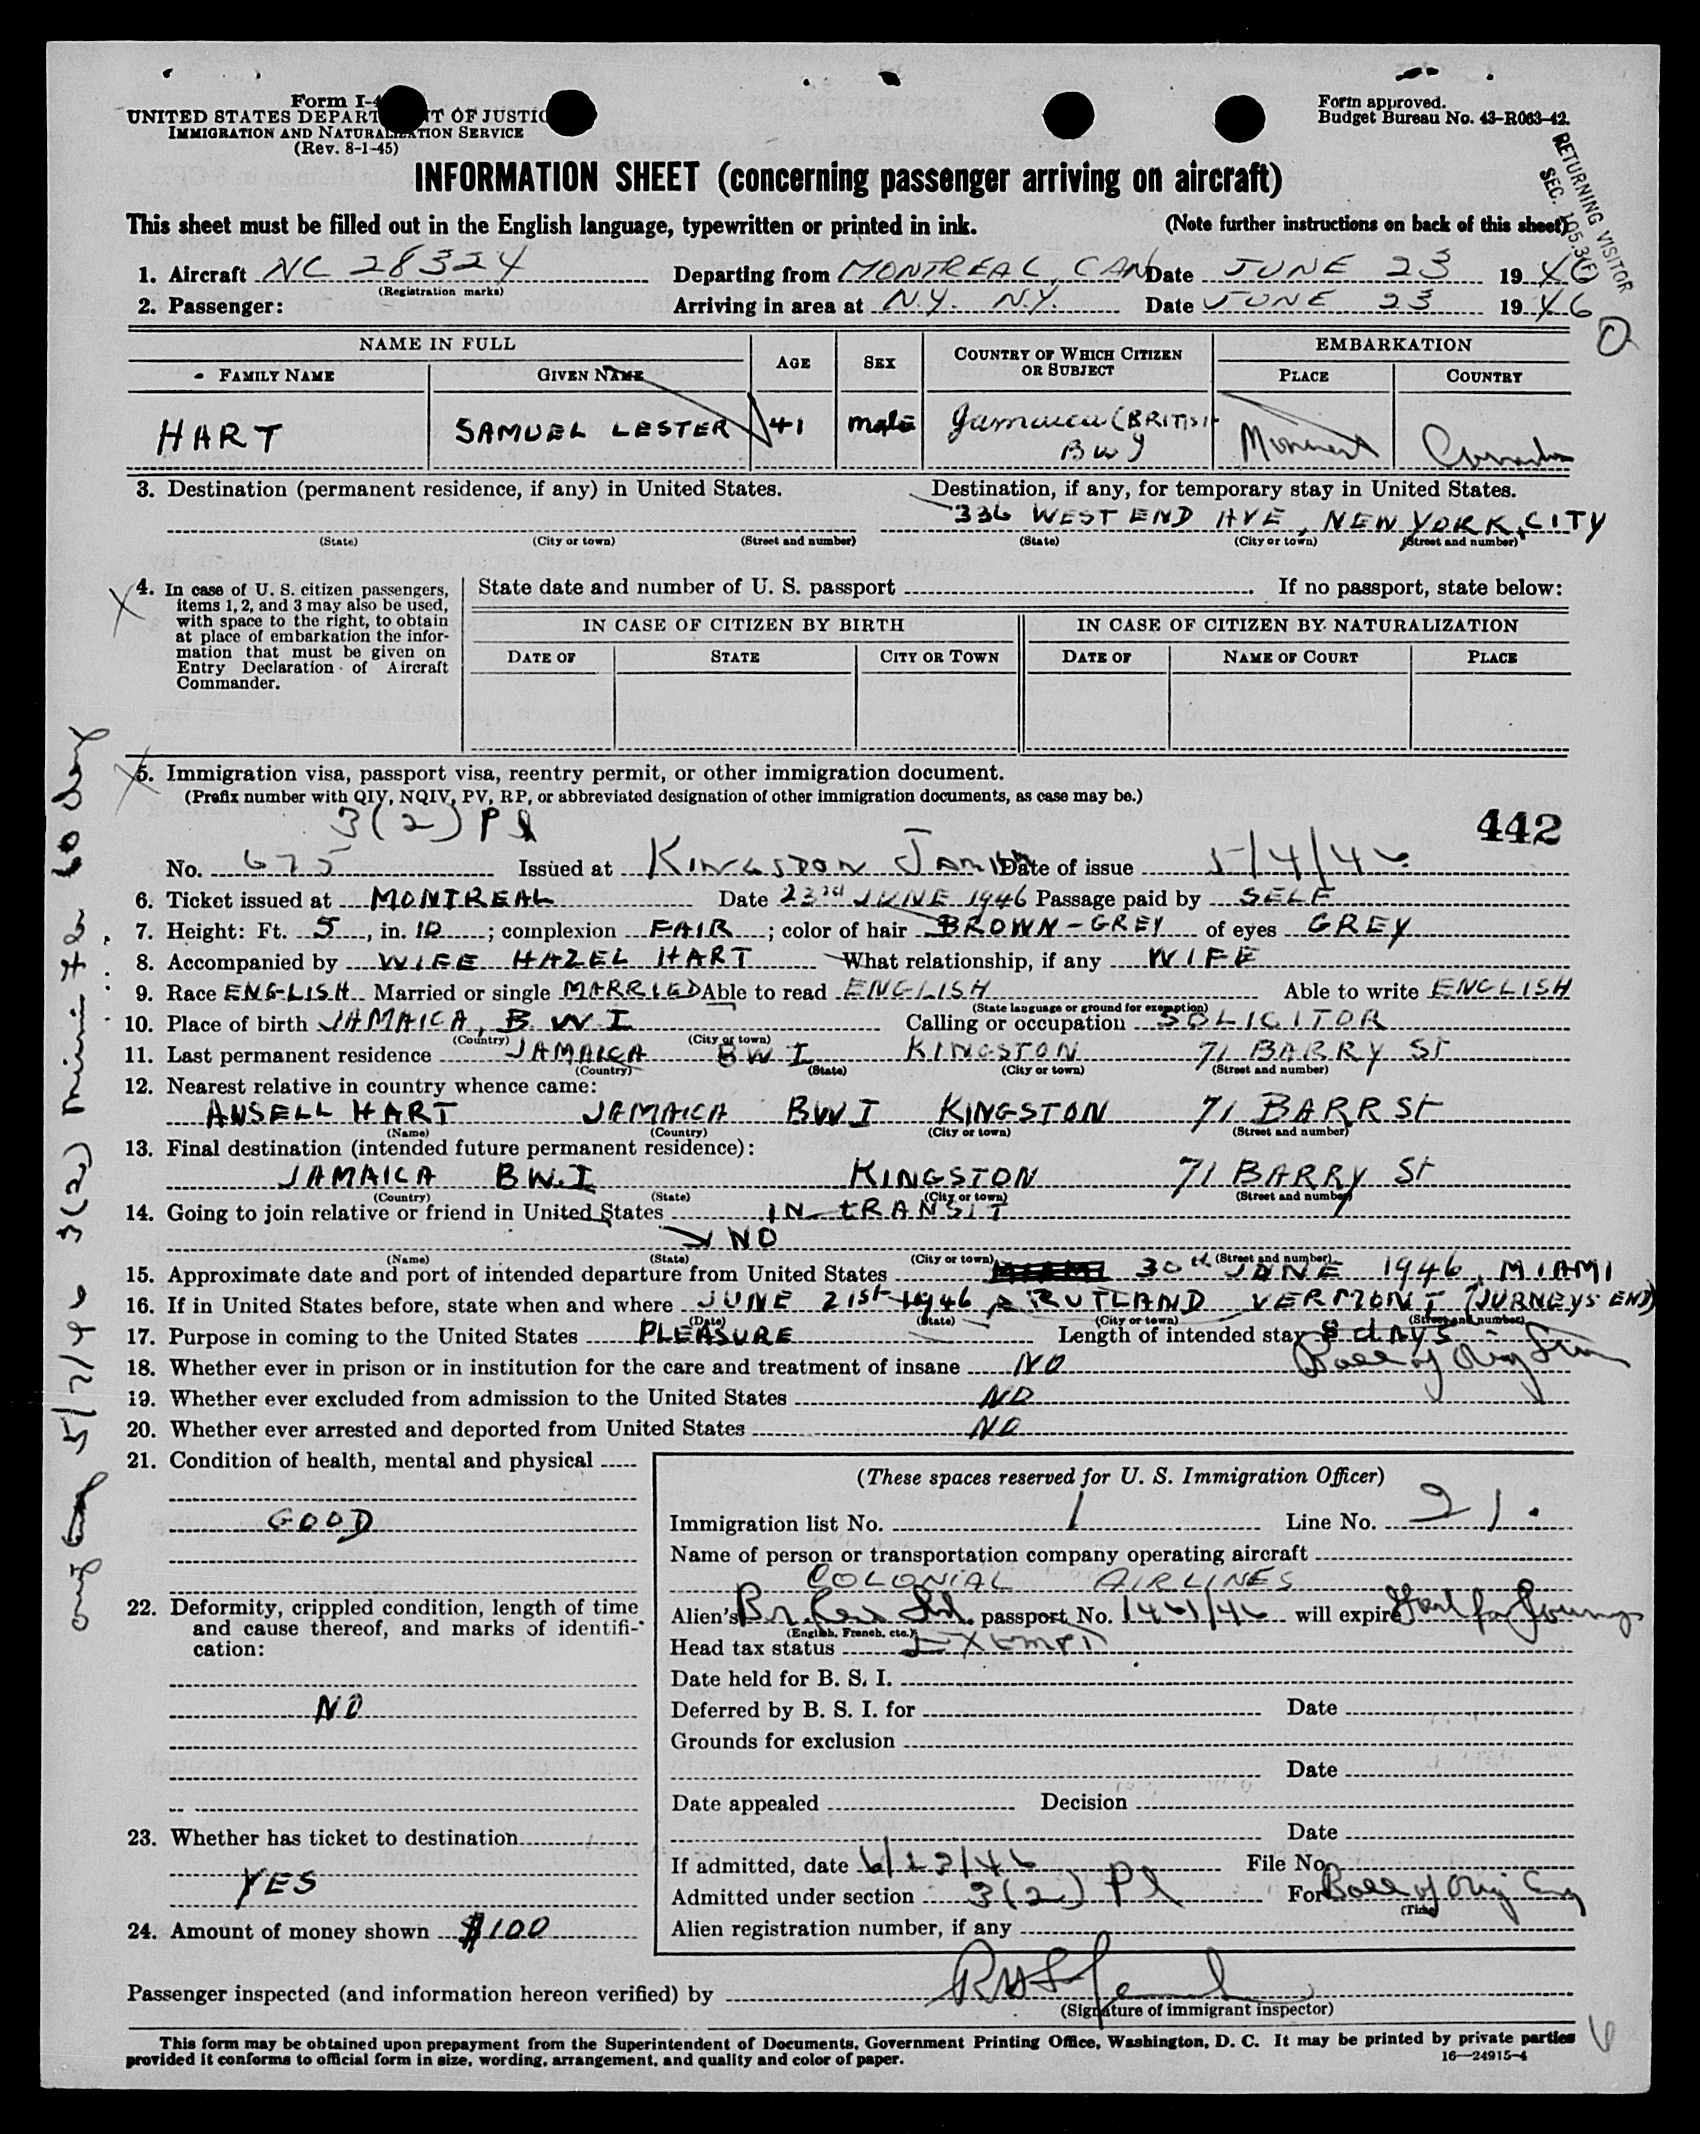 Form I-4
UNITED STATES DEPARTMENT OF JUSTICE
IMMIGRATION AND NATURALIZATION SERVICE
(Rev. 8-1-45)
Form approved.
Budget Bureau No. 43-R063-42.
RETURNING VISITOR
SEC. 105.3(F)
INFORMATION SHEET (concerning passenger arriving on aircraft)
This sheet must be filled out in the English language, typewritten or printed in ink. (Note further instructions on back of this sheet)
1. Aircraft NC 28324 Departing from MONTREAL, CAN Date JUNE 23 1946
(Registration marks)
2. Passenger: Arriving in area at N.Y. N.Y. Date JUNE 23 1946
NAME IN FULL AGE SEX COUNTRY OF WHICH CITIZEN OR SUBJECT EMBARKATION
FAMILY NAME GIVEN NAME PLACE COUNTRY
HART SAMUEL LESTER 41 male Jamaica (BRITISH BWI) Montreal Canada
3. Destination (permanent residence, if any) in United States. Destination, if any, for temporary stay in United States.
336 WEST END AVE, NEW YORK, CITY
(State) (City or town) (Street and number) (State) (City or town) (Street and number)
4. In case of U. S. citizen passengers, items 1, 2, and 3 may also be used, with space to the right, to obtain at place of embarkation the information that must be given on Entry Declaration of Aircraft Commander.
State date and number of U. S. passport If no passport, state below:
IN CASE OF CITIZEN BY BIRTH IN CASE OF CITIZEN BY NATURALIZATION
DATE OF STATE CITY OR TOWN DATE OF NAME OF COURT PLACE
5. Immigration visa, passport visa, reentry permit, or other immigration document.
(Prefix number with QIV, NQIV, PV, RP, or abbreviated designation of other immigration documents, as case may be.)
3(2) Pl
442
No. 675 Issued at KINGSTON Jam Date of issue 5/4/46
6. Ticket issued at MONTREAL Date 23rd JUNE 1946 Passage paid by SELF
7. Height: Ft. 5, in. 10; complexion FAIR; color of hair BROWN-GREY of eyes GREY
8. Accompanied by WIFE HAZEL HART What relationship, if any WIFE
9. Race ENGLISH Married or single MARRIED Able to read ENGLISH Able to write ENGLISH
(State language or ground for exemption)
10. Place of birth JAMAICA, B W I Calling or occupation SOLICITOR
(Country) (City or town)
11. Last permanent residence JAMAICA BWI KINGSTON 71 BARRY St
(Country) (State) (City or town) (Street and number)
12. Nearest relative in country whence came:
ANSELL HART JAMAICA BWI KINGSTON 71 BARR St
(Name) (Country) (City or town) (Street and number)
13. Final destination (intended future permanent residence):
JAMAICA B W.I KINGSTON 71 BARRY St
(Country) (State) (City or town) (Street and number)
14. Going to join relative or friend in United States IN tRANSIT
NO
(Name) (State) (City or town) (Street and number)
15. Approximate date and port of intended departure from United States 30th JUNE 1946, MIAMI
16. If in United States before, state when and where JUNE 21st 1946, RUTLAND VERMONT (JURNEYS END)
(Date) (State) (City or town) (Street and number)
17. Purpose in coming to the United States PLEASURE Length of intended stay 8 dAYS
18. Whether ever in prison or in institution for the care and treatment of insane NO
19. Whether ever excluded from admission to the United States NO
20. Whether ever arrested and deported from United States NO
21. Condition of health, mental and physical
GOOD
22. Deformity, crippled condition, length of time and cause thereof, and marks of identification:
NO
23. Whether has ticket to destination
YES
24. Amount of money shown $100
(These spaces reserved for U. S. Immigration Officer)
Immigration list No. 1 Line No. 21.
Name of person or transportation company operating aircraft
COLONIAL AIRLINES
Alien's passport No. 1461/46 will expire
(English, French, etc.)
Head tax status EXEMPT
Date held for B. S. I.
Deferred by B. S. I. for Date
Grounds for exclusion
Date
Date appealed Decision
Date
If admitted, date 6/23/46 File No.
Admitted under section 3(2) Pl For Ball of Orig
(Time)
Alien registration number, if any
Passenger inspected (and information hereon verified) by
(Signature of immigrant inspector)
This form may be obtained upon prepayment from the Superintendent of Documents, Government Printing Office, Washington, D. C. It may be printed by private parties
provided it conforms to official form in size, wording, arrangement, and quality and color of paper.
16—24915-4